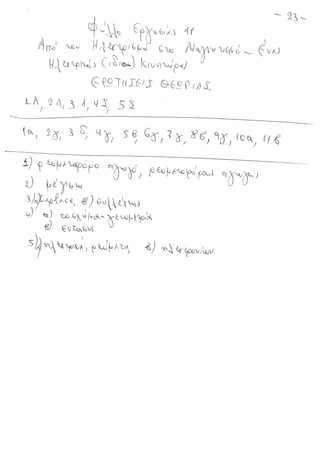 - 23 -
Φύλλο Εργασίας 11
Από τον Ηλεκτρισμό στο Μαγνητισμό - Ένας
Ηλεκτρικός (ιδιο) Κινητήρας
ΕΡΩΤΗΣΕΙΣ ΘΕΩΡΙΑΣ
1Λ, 2Λ, 3Λ, 4Σ, 5Σ
1α, 2γ, 3δ, 4γ, 5β, 6γ, 7γ, 8β, 9γ, 10α, 11β
1) ρευματοφόρο αγωγό, ρευματοφόρους αγωγούς
2) μέγιστη
3) α) Laplace, β)
4) α) το σχήμα - γεωμετρία
β) ένταση
5) α) ηλεκτρικά, ρεύματα, β) ηλεκτρονίων